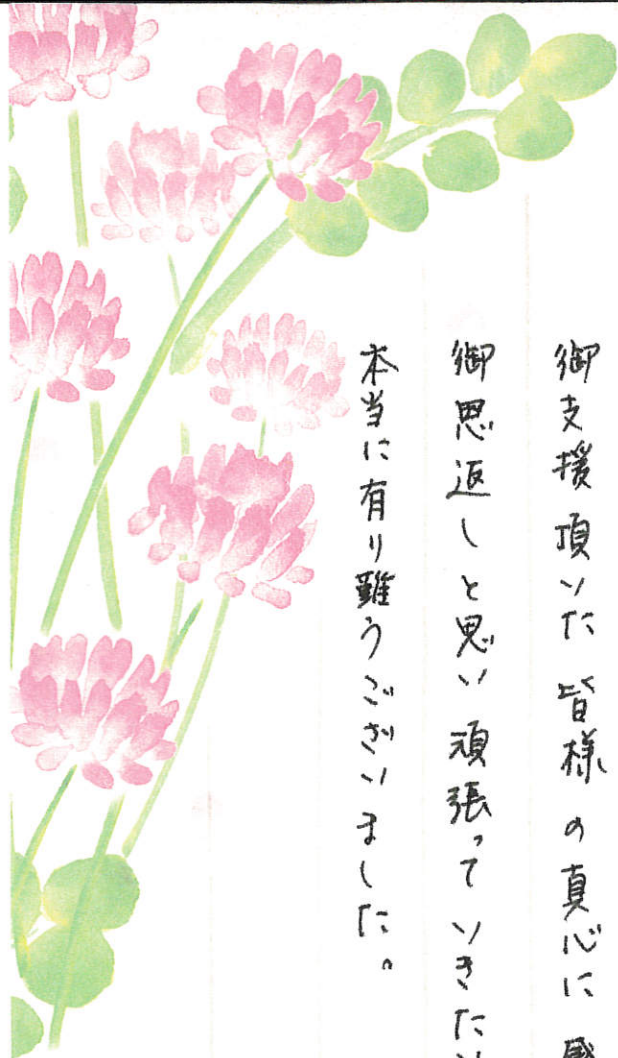 御支援頂いた皆様の真心に
御恩返しと思い頑張っていきたい
本当に有り難うございました。